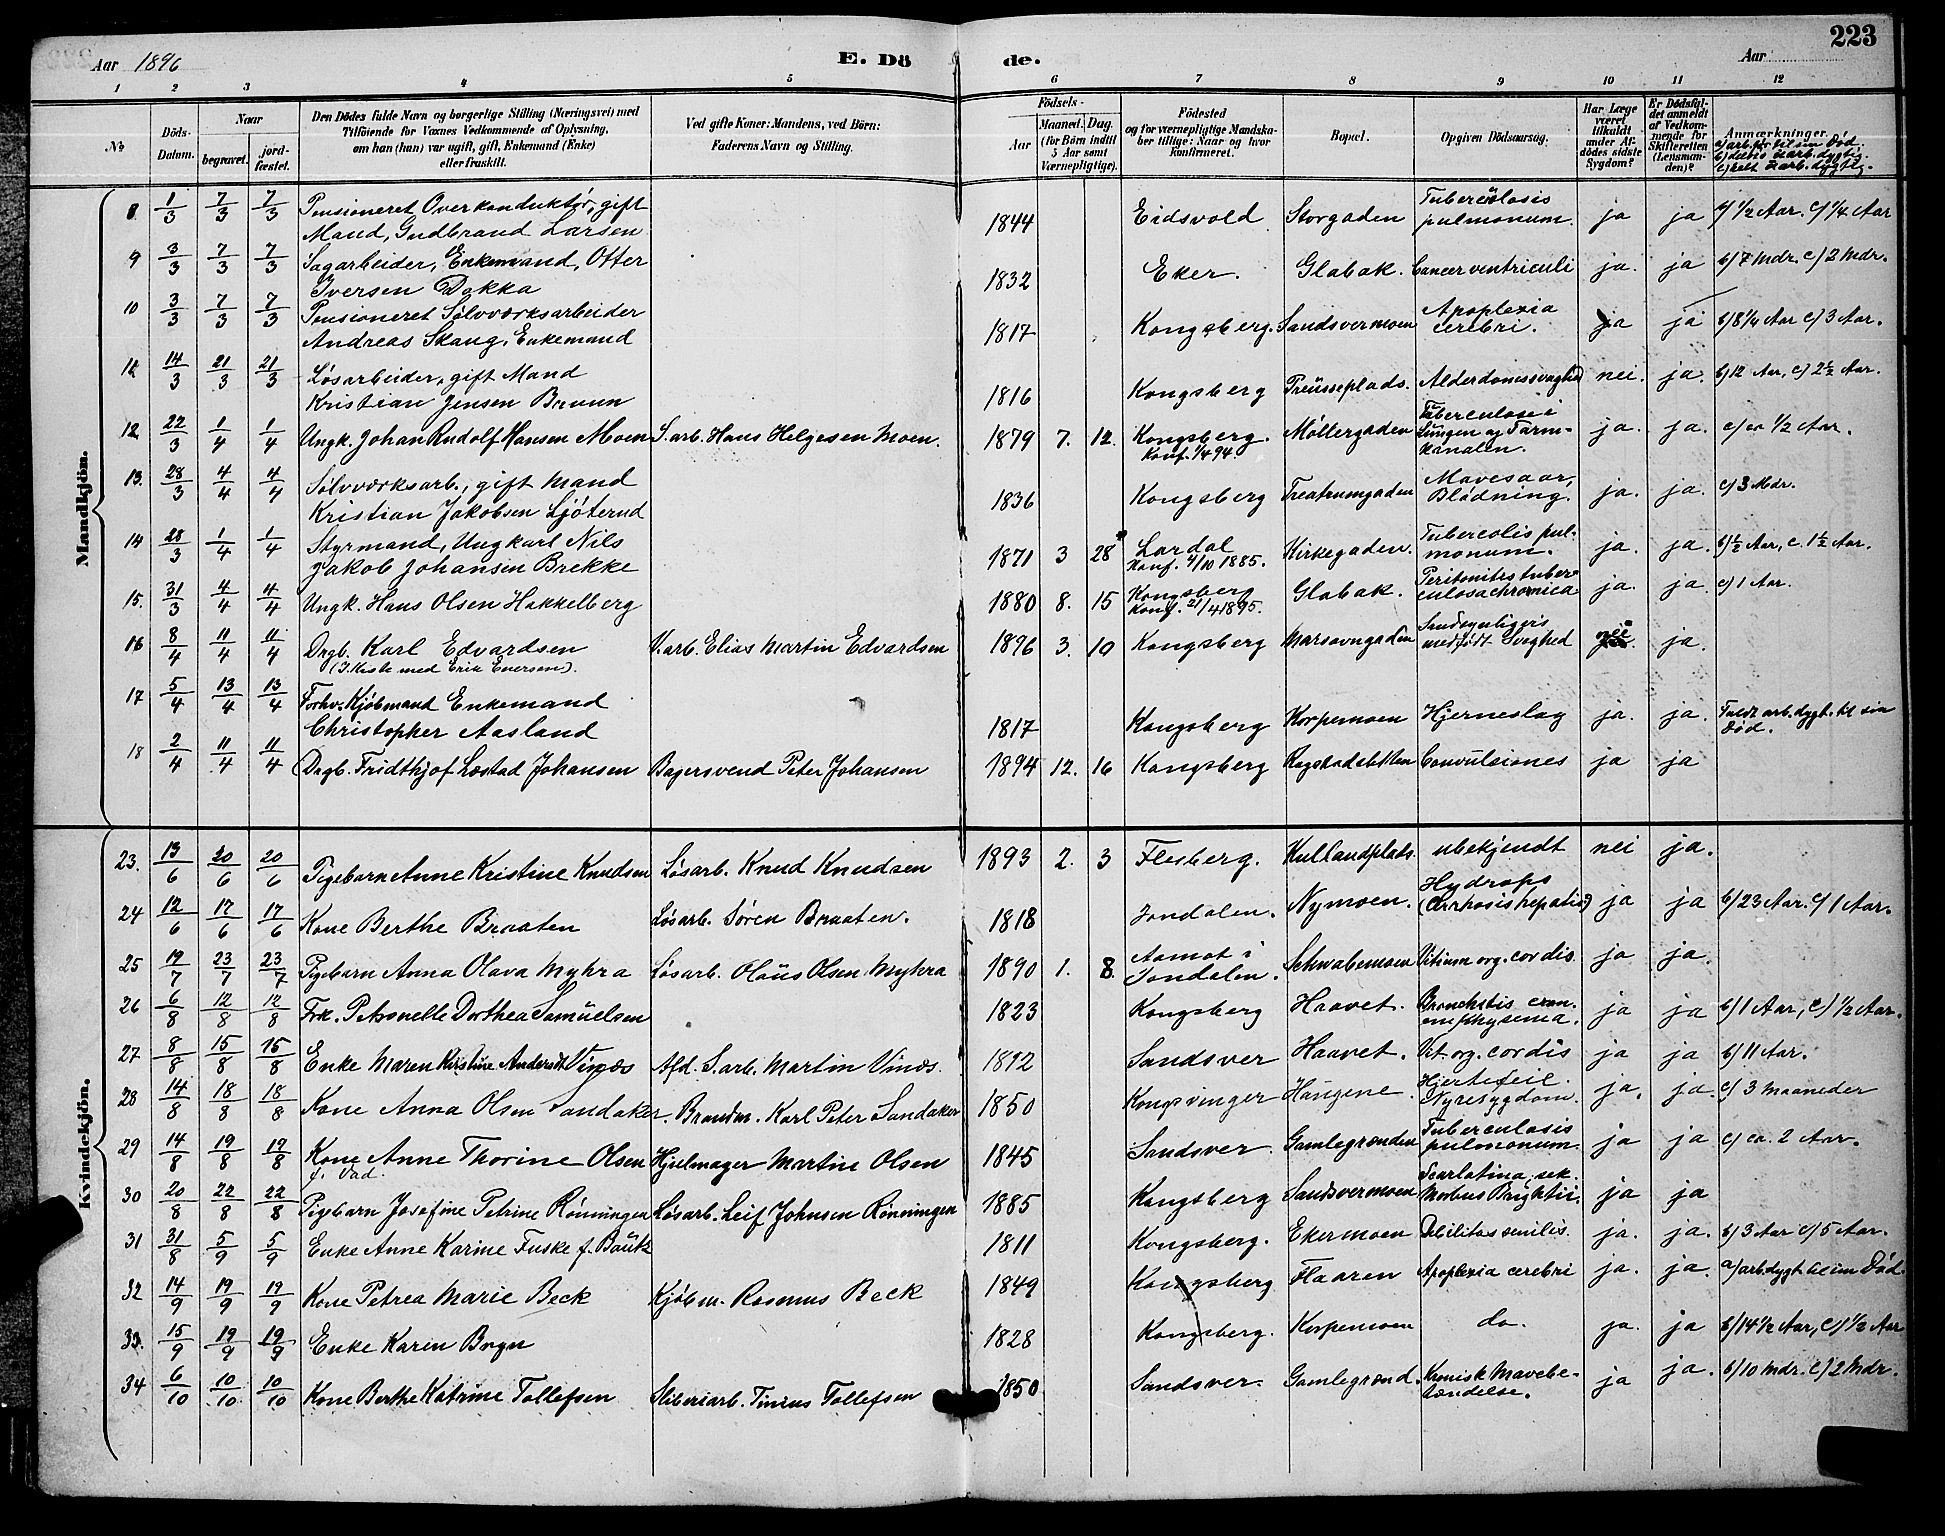 223
Aar 1896 E. Dö de. Aar
1 2 3 4 5 6 7 8 9 10 11 12
No
Döds-Datum.
Naar
begravet.
jord-fæstet.
Den Dödes fulde Navn og borgerlige Stilling (Næringsvei) med
Tilföiende for Voxnes Vedkommende af Oplysning,
om han (hun) var ugift, gift, Enkemand (Enke)
eller fraskilt.
Ved gifte Koner: Mandens, ved Börn:
Faderens Navn og Stilling.
Födsels-
Aar
Maaned. Dag.
(for Börn indtil
5 Aar samt
Værnepligtige).
Födested
og for værnepligtige Mandska-
ber tillige: Naar og hvor
konfirmeret.
Bopæl.
Opgiven Dödsaarsag.
Har Læge
været
tilkaldt
under Af-
dödes sidste
Sygdom?
Er Dödsfal-
det anmeldt
af Vedkom-
mende for
Skifteretten
(Lensman-
den)?
Anmærkninger.
Mandkjön.
8 1/3 7/3 7/3 Pensioneret Overkonduktør, gift
Mand, Gudbrand Larsen 1844 Eidsvold Storgaden Tuberculosis pulmonum. ja ja 1/2 Aar. c) 1/4 Aar
9 3/3 7/3 7/3 Sagarbeider, Enkemand, Otter
Iversen Dokka 1832 Eker. Glabak. Cancer ventriculi ja. ja b) 7 Mdr. c) 2 Mdr.
10 3/3 7/3 7/3 Pensioneret Sølvværksarbeider
Andreas Skaug, Enkemand 1817 Kongsberg. Sandsvermoen Apoplexia cerebri. ja ja b) 8 1/4 Aar c) 3 Aar.
14/3 21/3 21/3 Løsarbeider, gift Mand
Kristian Jensen Bruun 1816 Kongsberg Treusseplads. Alderdomssvaghed nei. ja. b) 12 Aar, c) 2 1/2 Aar.
12 22/3 1/4 1/4 Ungk. Johan Rudolf Hansen Moen S. arb. Hans Helgesen Moen. 1879 7. 12. Kongsberg. Konf. 1/4 94. Møllergaden Tuberculose i Lungen og Tarm-kanalen. ja. ja. c) ca 1/2 Aar.
13. 28/3 4/4 4/4 Sølvværksarb., gift Mand
Kristian Jakobsen Ljøterud 1836 Kongsberg Treatrumgaden Mavesaar, Blødning. ja. ja. c) 3 Mdr.
14 28/3 1/4 1/4 Styrmand, Ungkarl Nils
Jakob Johansen Brekke 1871 3 28 Lardal Konf. 4/10 1885. Kirkegaden. Tubercolis pul-monum. ja. ja. b) 1/2 Aar, c. 1 1/2 Aar.
15. 31/3 4/4 4/4 Ungk. Hans Olsen Hakkelberg 1880 8. 15 Kongsberg Konf. 21/4 1895. Glabak. Peritonitis tuber-culosa chronica ja. ja. c) 1 Aar.
16 8/4 11/4 11/4 Drgb. Karl Edvardsen
(I Kiste med Erik Evensen). V. arb. Elias Martin Edvardsen 1896 3. 10 Kongsberg Marsovngaden Sandsynligvis medfødt Svaghed nei ja.
17 5/4 13/4 13/4 Forhv. Kjøbmand Enkemand
Christopher Aasland 1817 Kongsberg Korpemoen Hjerneslag ja. ja. Fuldt arb.dygt. til sin Død.
18 2/4 11/4 11/4 Drgb. Fridthjof Løstad Johansen Bagersvend Peter Johansen 1894 12. 16 Kongsberg Convulsiones ja ja
Kvindekjön.
23. 13/6 20/6 20/6 Pigebarn Anne Kristine Knudsen Løsarb. Knud Knudsen 1893 2. 3 Flesberg. Kullandplads. ubekjendt nei ja.
24 12/6 17/6 17/6 Kone Berthe Braaten Løsarb. Søren Braaten. 1818 Jondalen. Nymoen. Hydrops (Cirrhosis hepatis) ja ja b) 23 Aar. c) 1 Aar.
25 19/7 23/7 23/7 Pigebarn Anna Olava Myhra Løsarb. Olaus Olsen Myhra 1890 1. 8. Aamot i Jondalen. Schwabemoen Vitium org. cordis ja ja.
26 6/8 12/8 12/8 Frk. Petronelle Dorthea Samuelsen 1823 Kongsberg Haavet. Bronchitis cron. emphysema. ja ja b) 1 Aar, c) 1/2 Aar.
27 8/8 15/8 15/8 Enke Maren Kirstine Andersdt Vinæs Afd. S. arb. Martin Vinæs. 1812 Sandsver Haavet. Vit. org. cordis ja ja b) 11 Aar.
28 14/8 18/8 18/8 Kone Anna Olsen Sandaker. Brandm. Karl Peter Sandaker 1850 Kongsvinger Haugene. Hjertefeil. Nyresygdom. ja. ja. c) 3 Maaneder
29 14/8 19/8 19/8 Kone Anne Thorine Olsen
f. Vad. Hjulmager Martin Olsen 1845 Sandsver. Gamlegrænden Tuberculosis pulmonum. ja ja c) ca. 2 Aar.
30 20/8 22/8 22/8 Pigebarn Josefine Petrine Rønningen Løsarb. Leif Johnsen Rønningen 1885 Kongsberg Sandsvermoen Scarlatina, sek. Morbus Brightii. ja ja
31 31/8 5/9 5/9 Enke Anne Karine Fuske f. Bautz 1811 Kongsberg. Ekermoen Debilitas senilis. ja. ja. b) 3 Aar c) 5 Aar.
32 14/9 19/9 19/9 Kone Petrea Marie Beck Kjøbm. Rasmus Beck 1849 Kongsberg Flaaren Apoplexia cerebri ja. ja. a) arb.dygt til sin Død.
33. 15/9 19/9 19/9 Enke Karen Bryn 1828 Kongsberg. Korpemoen do. ja. ja b) 14 1/2 Aar, c) 1/2 Aar
34 6/10 10/10 10/10 Kone Berthe Katrine Tollefsen Sliberiarb. Tinius Tollefsen 1850 Sandsver. Gamlegrænd. Kronisk Mavebe-tændelse. ja ja. b) 10 Mdr. c) 2 Mdr.